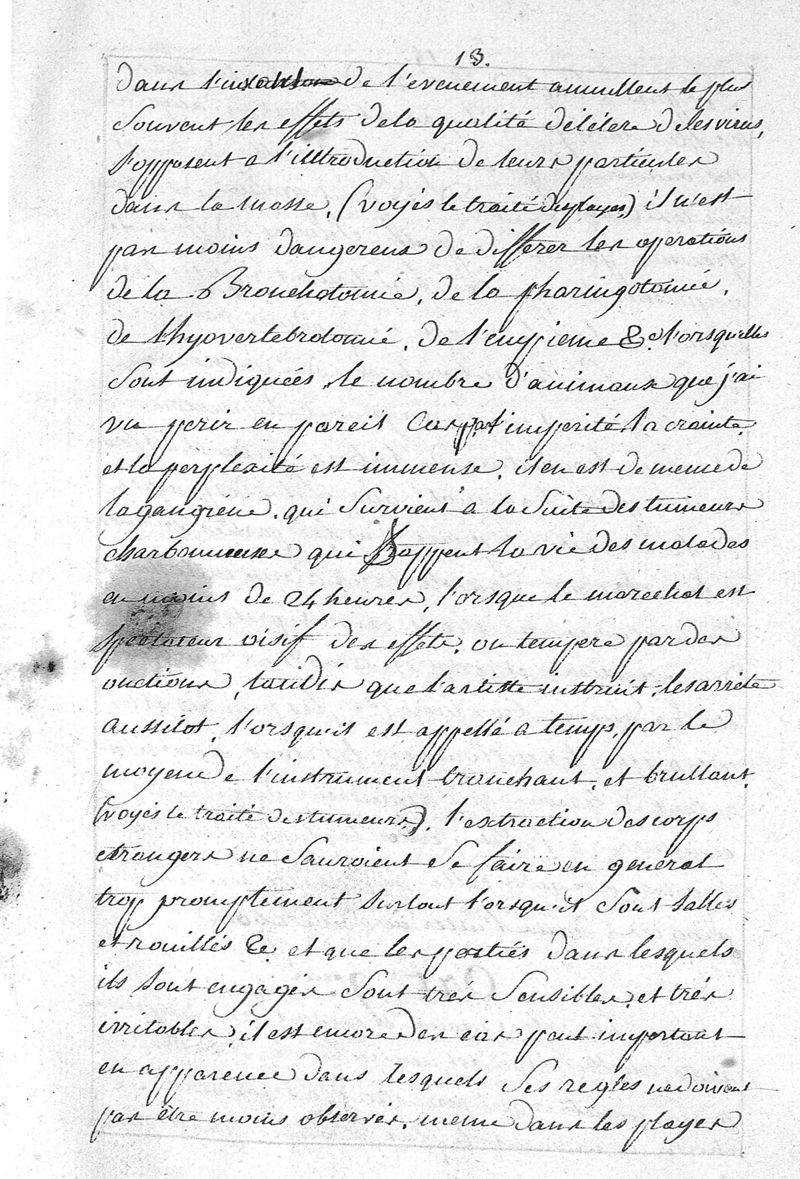 13.
dans l'instant de l'evenement annullent le plus
souvent les effets de la qualité déletere de les virus,
s'opposent a l'introduction de leurs particules
dans la masse. (voyés le traité des playes,) il n'est
pas moins dangereux de differer les operations
de la Bronchotomie, de la pharingotomie,
de l'hyovertebrotomie, de l'empieme &c lorsqu'elles
sont indiquées, le nombre d'animaux que j'ai
vu perir en pareil Cas par l'imperité, la crainte
et la perplexité est immense, il en est de meme de
la gangrene, qui survient a la suite des tumeurs
charbonneuse qui frappent la vie des malades
en moins de 24 heures, l'orsque le marechal est
spectateur oisif des effets, ou tempere par des
onctions, tandis que l'artiste instruit, les arrete
aussitot, l'orsqu'il est appellé a temps, par le
moyen de l'instrument tranchant, et brullant,
(voyés le traité des tumeurs). l'extraction des corps
etrangers ne sauroient se faire en general
trop promptement surtout l'orsqu'il sont salles
et rouillés &c et que les parties dans lesquels
ils sont engagés sont trés sensibles, et trés
irritables, il est encore des cas peut important
en apparence dans lesquels ses regles ne doivent
pas être moins observés, meme dans les playes